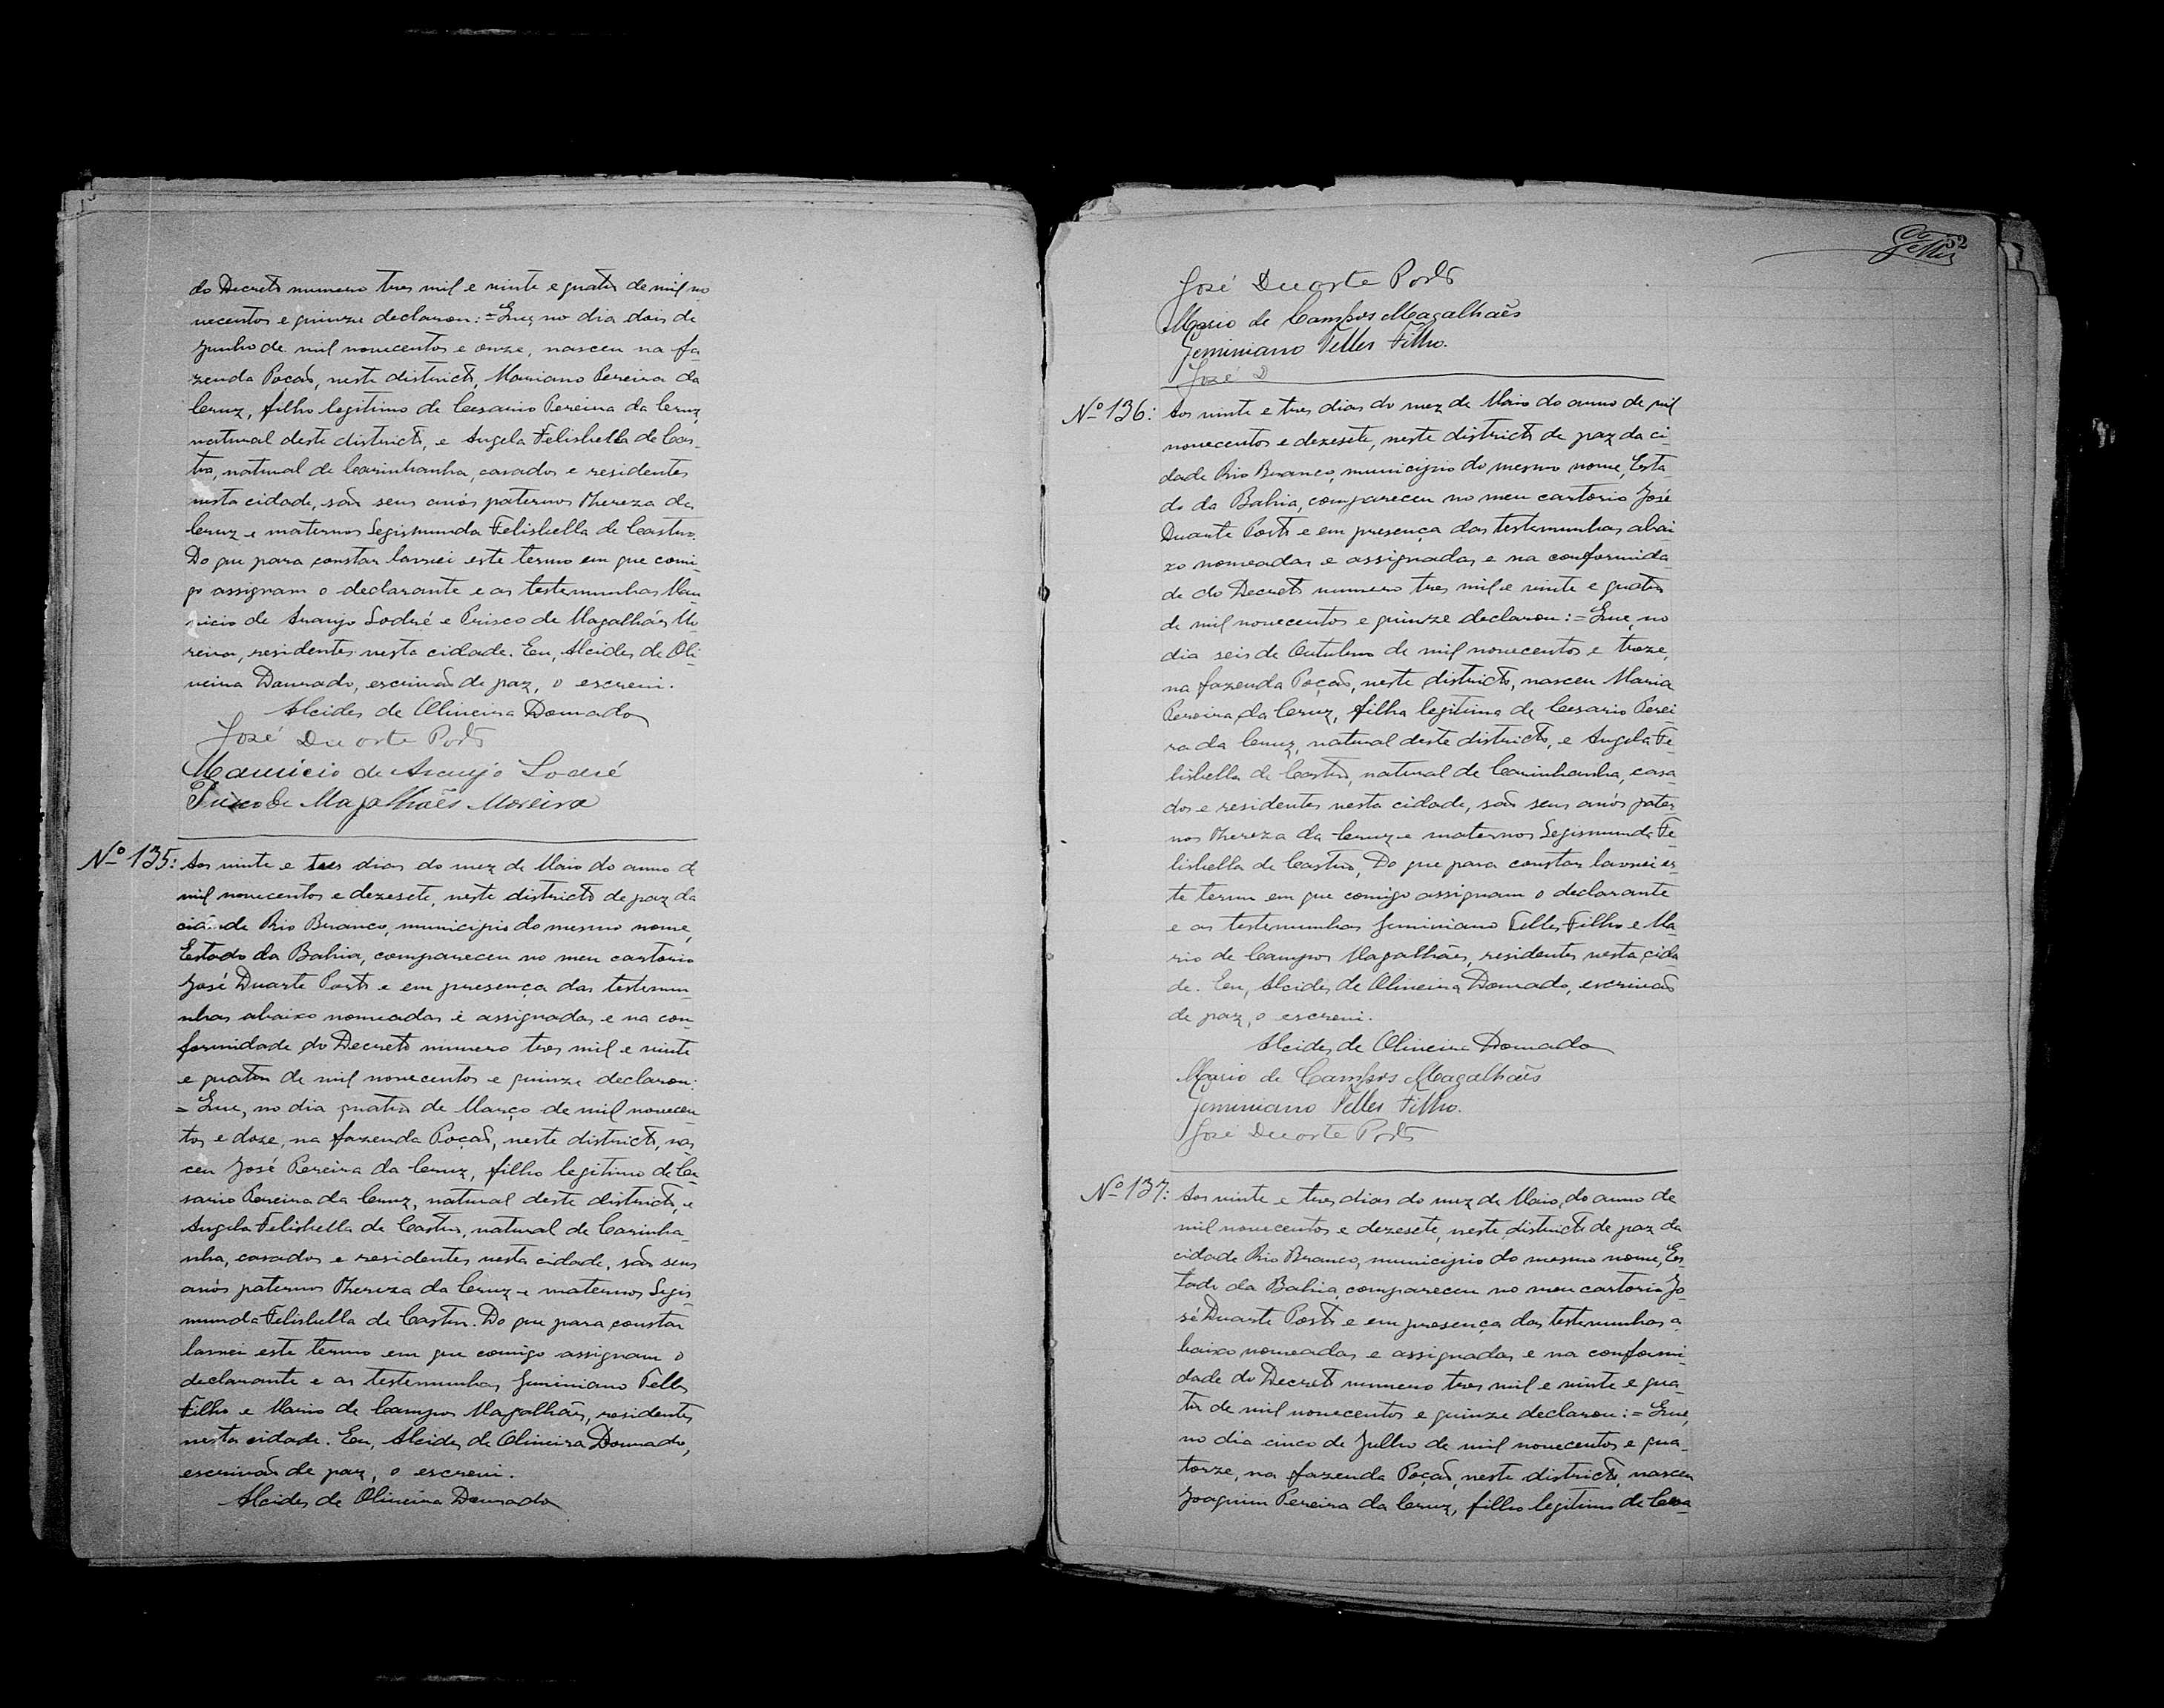 do Decreto numero tres mil e vinte e quatro de mil no
vecentos e quinze declarou: = Que, no dia dois de
Junho de mil novecentos e onze, nasceu na fa
zenda Poção, neste districto, Mariano Pereira da
Cruz, filho legitimo de Cesario Pereira da Cruz,
natural deste districto, e Angela Felisbella de Cas-
tro, natural de Carinhanha, casados e residentes
nesta cidade, são seus avós paternos Thereza da
Cruz e maternos Segismunda Felisbella de Castro.
Do que para constar lavrei este termo em que comi-
go assignam o declarante e as testemunhas Mau
ricio de Araujo Sodré e Prisco de Magalhães Mo
reira, residentes nesta cidade. Eu, Alcides de Oli-
veira Dourado, escrivão de paz, o escrevi.
Alcides de Oliveira Dourado
José Duarte Porto
Mauricio de Araujo Sodré
Prisco de Magalhães Moreira
Nº 135: Aos vinte e tres dias do mez de Maio do anno de
mil novecentos e dezesete, neste districto de paz da
cidade Rio Branco, municipio do mesmo nome,
Estado da Bahia, compareceu no meu cartorio
José Duarte Porto e em presença das testemu-
nhas abaixo nomeadas e assignadas e na con-
formidade do Decreto numero tres mil e vinte
e quatro de mil novecentos e quinze declarou:
= Que, no dia quatro de Março de mil novecen
tos e doze, na fazenda Poção, neste districto, nas
ceu José Pereira da Cruz, filho legitimo de Ce
sario Pereira da Cruz, natural deste districto, e
Angela Felisbella de Castro, natural de Carinha-
nha, casados e residentes nesta cidade, são seus
avós paternos Thereza da Cruz e maternos Segis
munda Felisbella de Castro. Do que para constar
lavrei este termo em que comigo assignam o
declarante e as testemunhas Geminiano Telles
Filho e Mario de Campos Magalhães, residentes
nesta cidade. Eu, Alcides de Oliveira Dourado,
escrivão de paz, o escrevi.
Alcides de Oliveira Dourado
52
Telles
José Duarte Porto
Mario de Campos Magalhães
Geminiano Telles Filho.
José D
Nº 136: Aos vinte e tres dias do mez de Maio do anno de mil
novecentos e dezesete, neste districto de paz da ci-
dade Rio Branco, municipio do mesmo nome, Esta
do da Bahia, compareceu no meu cartorio José
Duarte Porto e em presença das testemunhas abai
xo nomeadas e assignadas e na conformida
de do Decreto numero tres mil e vinte e quatro
de mil novecentos e quinze declarou: = Que, no
dia seis de Outubro de mil novecentos e treze,
na fazenda Poção, neste districto, nasceu Maria
Pereira da Cruz, filha legitima de Cesario Perei-
ra da Cruz, natural deste districto, e Angela Fe-
lisbella de Castro, natural de Carinhanha, casa-
dos e residentes nesta cidade, são seus avós pater
nos Thereza da Cruz e maternos Segismunda Fe-
lisbella de Castro, Do que para constar lavrei es-
te termo em que comigo assignam o declarante
e as testemunhas Geminiano Telles Filho e Ma-
rio de Campos Magalhães, residentes nesta cida
de. Eu, Alcides de Oliveira Dourado, escrivão
de paz, o escrevi.
Alcides de Oliveira Dourado
Mario de Campos Magalhães
Geminiano Telles Filho.
José Duarte Porto
Nº 137: Aos vinte e tres dias do mez de Maio, do anno de
mil novecentos e dezesete, neste districto de paz da
cidade Rio Branco, municipio do mesmo nome, Es-
tado da Bahia, compareceu no meu cartorio Jo-
sé Duarte Porto e em presença das testemunhas a-
baixo nomeadas e assignadas e na conformi-
dade do Decreto numero tres mil e vinte e qua-
tro de mil novecentos e quinze declarou: = Que,
no dia cinco de Julho de mil novecentos e qua-
torze, na fazenda Poção, neste districto, nasceu
Joaquim Pereira da Cruz, filho legitimo de Cesa-